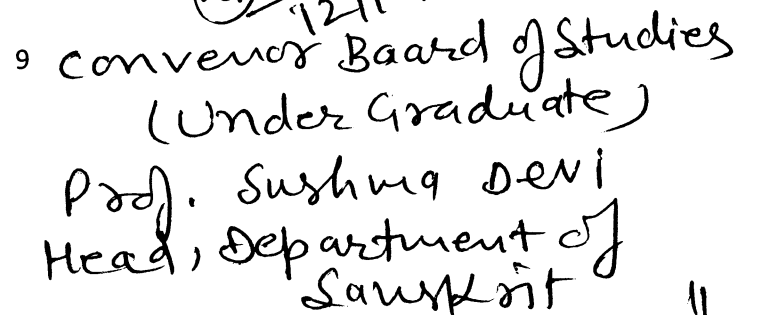 9 Convenor Baard of Studies
(Under Graduate)
Prof. Sushma Devi
Head, Department of
Sanskrit